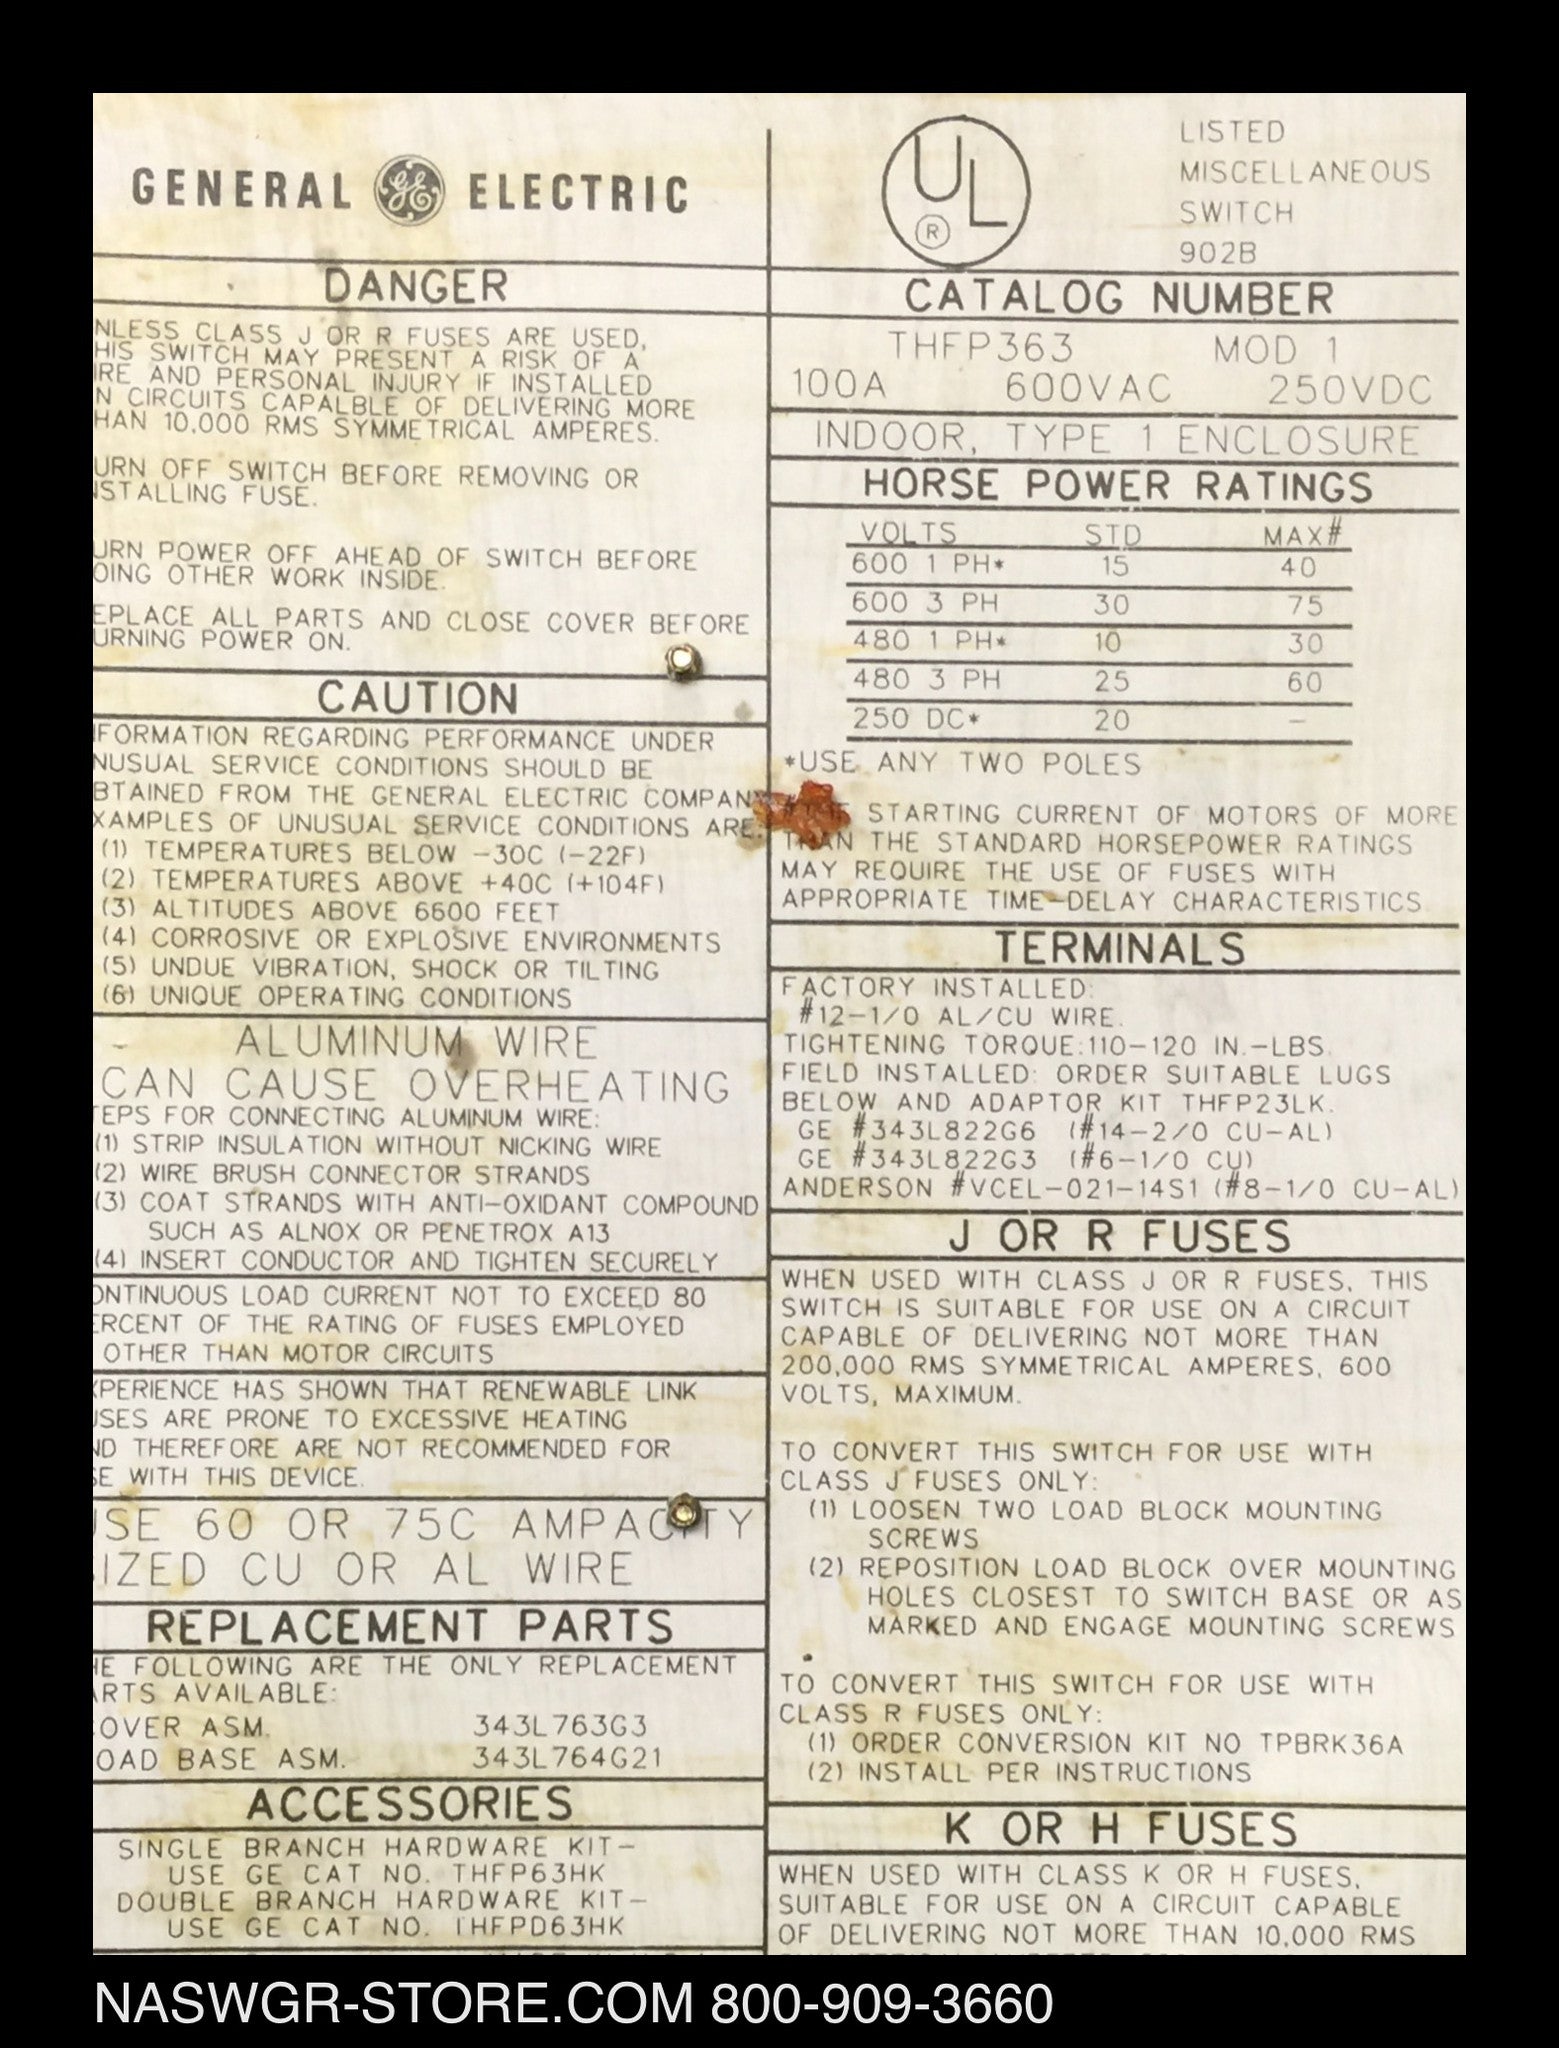 GENERAL GE ELECTRIC
DANGER
NLESS CLASS J OR R FUSES ARE USED,
HIS SWITCH MAY PRESENT A RISK OF A
IRE AND PERSONAL INJURY IF INSTALLED
N CIRCUITS CAPALBLE OF DELIVERING MORE
HAN 10,000 RMS SYMMETRICAL AMPERES.
URN OFF SWITCH BEFORE REMOVING OR
NSTALLING FUSE.
URN POWER OFF AHEAD OF SWITCH BEFORE
OING OTHER WORK INSIDE.
EPLACE ALL PARTS AND CLOSE COVER BEFORE
URNING POWER ON.
CAUTION
NFORMATION REGARDING PERFORMANCE UNDER
NUSUAL SERVICE CONDITIONS SHOULD BE
BTAINED FROM THE GENERAL ELECTRIC COMPANY
XAMPLES OF UNUSUAL SERVICE CONDITIONS ARE:
(1) TEMPERATURES BELOW -30C (-22F)
(2) TEMPERATURES ABOVE +40C (+104F)
(3) ALTITUDES ABOVE 6600 FEET
(4) CORROSIVE OR EXPLOSIVE ENVIRONMENTS
(5) UNDUE VIBRATION, SHOCK OR TILTING
(6) UNIQUE OPERATING CONDITIONS
ALUMINUM WIRE
CAN CAUSE OVERHEATING
TEPS FOR CONNECTING ALUMINUM WIRE:
(1) STRIP INSULATION WITHOUT NICKING WIRE
(2) WIRE BRUSH CONNECTOR STRANDS
(3) COAT STRANDS WITH ANTI-OXIDANT COMPOUND
SUCH AS ALNOX OR PENETROX A13
(4) INSERT CONDUCTOR AND TIGHTEN SECURELY
ONTINUOUS LOAD CURRENT NOT TO EXCEED 80
ERCENT OF THE RATING OF FUSES EMPLOYED
OTHER THAN MOTOR CIRCUITS
XPERIENCE HAS SHOWN THAT RENEWABLE LINK
USES ARE PRONE TO EXCESSIVE HEATING
ND THEREFORE ARE NOT RECOMMENDED FOR
SE WITH THIS DEVICE.
USE 60 OR 75C AMPACITY
SIZED CU OR AL WIRE
REPLACEMENT PARTS
HE FOLLOWING ARE THE ONLY REPLACEMENT
ARTS AVAILABLE:
OVER ASM. 343L763G3
OAD BASE ASM. 343L764G21
ACCESSORIES
SINGLE BRANCH HARDWARE KIT-
USE GE CAT NO. THFP63HK
DOUBLE BRANCH HARDWARE KIT-
USE GE CAT NO. THFPD63HK
UL ®
LISTED
MISCELLANEOUS
SWITCH
902B
CATALOG NUMBER
THFP363 MOD 1
100A 600VAC 250VDC
INDOOR, TYPE 1 ENCLOSURE
HORSE POWER RATINGS
VOLTS STD MAX#
600 1 PH* 15 40
600 3 PH 30 75
480 1 PH* 10 30
480 3 PH 25 60
250 DC* 20 -
*USE ANY TWO POLES
STARTING CURRENT OF MOTORS OF MORE
THAN THE STANDARD HORSEPOWER RATINGS
MAY REQUIRE THE USE OF FUSES WITH
APPROPRIATE TIME-DELAY CHARACTERISTICS
TERMINALS
FACTORY INSTALLED:
#12-1/0 AL/CU WIRE.
TIGHTENING TORQUE:110-120 IN.-LBS.
FIELD INSTALLED: ORDER SUITABLE LUGS
BELOW AND ADAPTOR KIT THFP23LK.
GE #343L822G6 (#14-2/0 CU-AL)
GE #343L822G3 (#6-1/0 CU)
ANDERSON #VCEL-021-14S1 (#8-1/0 CU-AL)
J OR R FUSES
WHEN USED WITH CLASS J OR R FUSES, THIS
SWITCH IS SUITABLE FOR USE ON A CIRCUIT
CAPABLE OF DELIVERING NOT MORE THAN
200,000 RMS SYMMETRICAL AMPERES, 600
VOLTS, MAXIMUM.
TO CONVERT THIS SWITCH FOR USE WITH
CLASS J FUSES ONLY:
(1) LOOSEN TWO LOAD BLOCK MOUNTING
SCREWS
(2) REPOSITION LOAD BLOCK OVER MOUNTING
HOLES CLOSEST TO SWITCH BASE OR AS
MARKED AND ENGAGE MOUNTING SCREWS
TO CONVERT THIS SWITCH FOR USE WITH
CLASS R FUSES ONLY:
(1) ORDER CONVERSION KIT NO TPBRK36A
(2) INSTALL PER INSTRUCTIONS
K OR H FUSES
WHEN USED WITH CLASS K OR H FUSES,
SUITABLE FOR USE ON A CIRCUIT CAPABLE
OF DELIVERING NOT MORE THAN 10,000 RMS
NASWGR-STORE.COM 800-909-3660